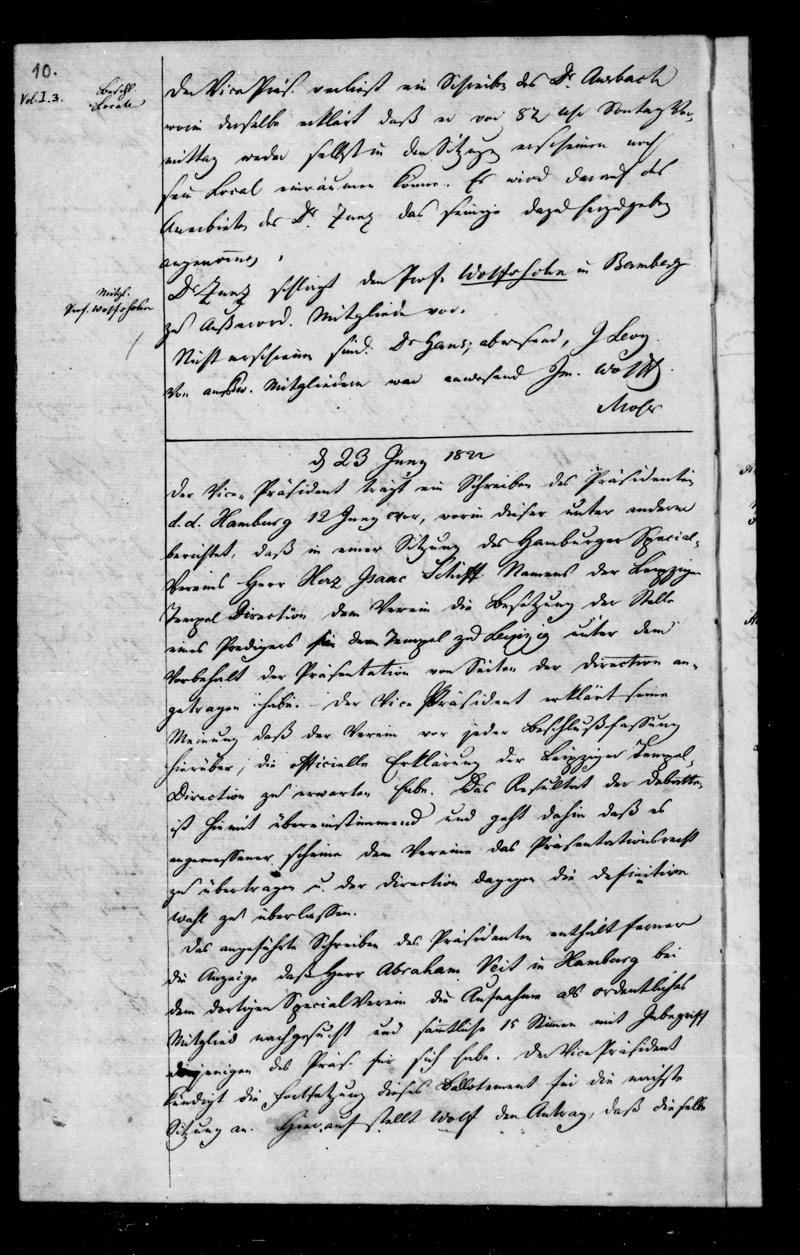 10.
Vol. I. 3.
Beschl.
Locale
Der Vice Präs. verliest ein Schreiben des Dr. Auerbach
worin derselbe erklärt daß er vor Uhr Sontag Vor-
mittag weder selbst in den Sitzungen erscheinen noch
sein Local einräumen könne. Es wird darauf das
Anerbieten des Dr. Zunz das seinige dazu herzugeben
angenommen.
Mitgl.
Prof. Wolfssohn
Dr Zunz schlägt den Prof. Wolfssohn in Bamberg
zu Außerord. Mitgliede vor.
Nicht erschienen sind: Dr Gans, abwesend, J Levy.
Von Mitgliedern war anwesend Hr. Wolff
Moser
d 23 Juny 1822
Der Vice-Präsident trägt ein Schreiben des Präsidenten
d. d. Hamburg 12 Juny vor, worin dieser unter anderm
berichtet, daß in einer Sitzung des Hamburger Special-
Vereins Herr Herz Isaac Schiff Namens der Leipziger
Tempel Direction dem Verein die Besetzung der Stelle
eines Predigers für den Tempel zu Leipzig unter dem
Vorbehalt der Präsentation von Seiten der Direction an-
getragen habe. – Der Vice Präsident erklärt seine
Meinung daß der Verein vor jeder Beschlußfassung
hierüber, die officielle Erklärung der Leipziger Tempel-
Direction zu erwarten habe. Das Resultat der Debatte
ist hiemit übereinstimmend und geht dahin daß es
angemessener scheine dem Vereine das Präsentationsrecht
zu übertragen u. der Direction dagegen die definitive
Wahl zu überlassen.
Das angeführte Schreiben des Präsidenten enthält ferner
die Anzeige daß Herr Abraham Veit in Hamburg bei
dem dortigen Special Verein die Aufnahme als ordentliches
Mitglied nachgesucht und sämtliche 15 Stimmen mit Inbegriff
derjenigen des Präs. für sich habe. Der Vice Präsident
kündigt die Fortsetzung dieses Ballotement für die nächste
Sitzung an. Hierauf stellt Wolf den Antrag, daß dieselbe